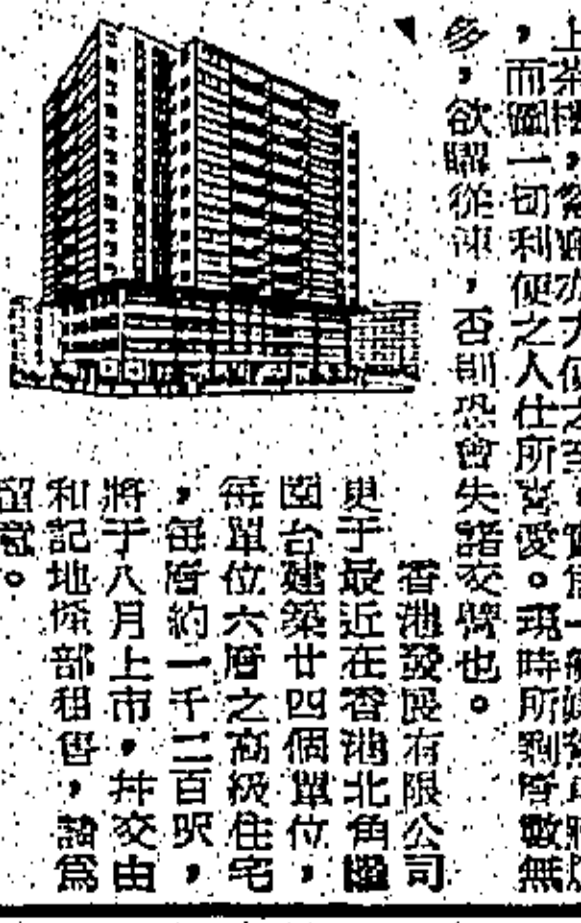 上茶樓，
，而圖一切利便之人仕所喜愛。現時所剩層數無
多，欲購從速，否則恐會失諸交臂也。
香港發展有限公司
更于最近在香港北角繼
園台建築廿四個單位，
每單位六層之高級住宅
，每層約一千二百呎，
將于八月上市，並交由
和記地産部租售，請為
留意。